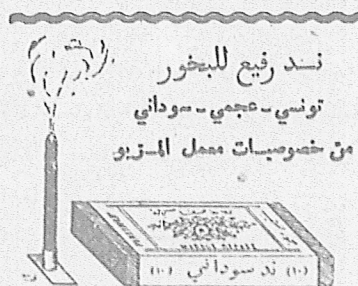 نــد رفيع للبخور
تونسي - عجمي - سوداني
من خصوصيــات معمل المـزيو
(١٠) ند سوداني (١٠)